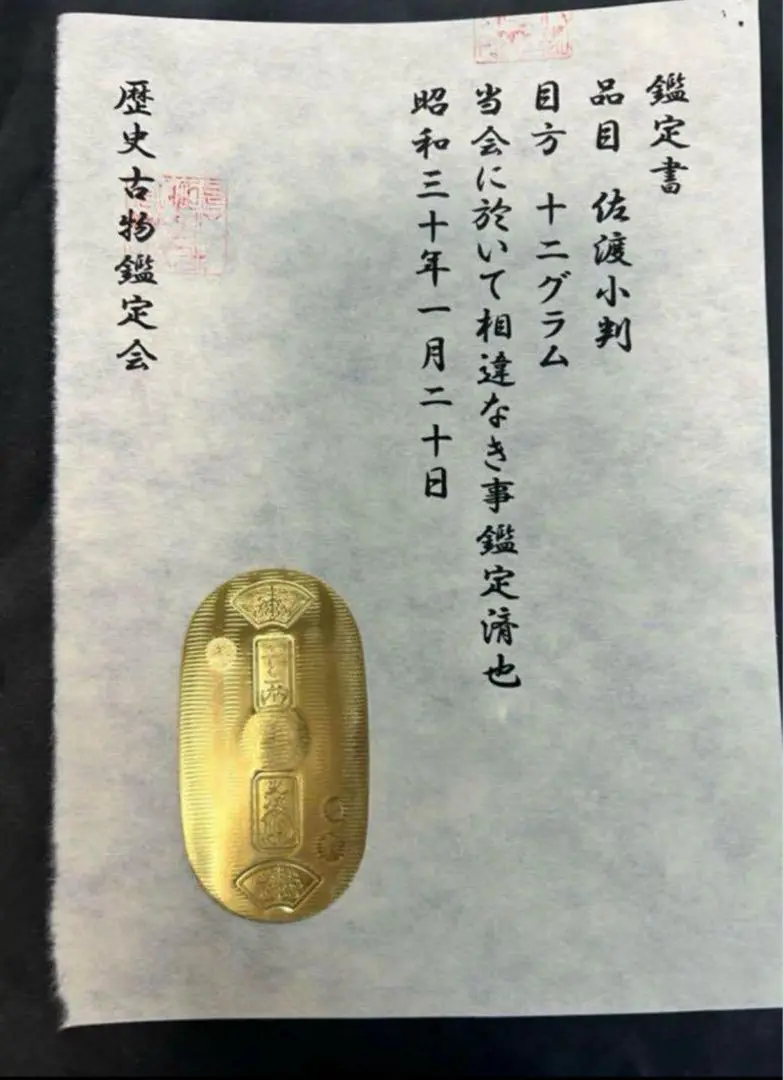 鑑定書
品目 佐渡小判
目方 十二グラム
当会に於いて相違なき事鑑定済也
昭和三十年一月二十日
歴史古物鑑定会